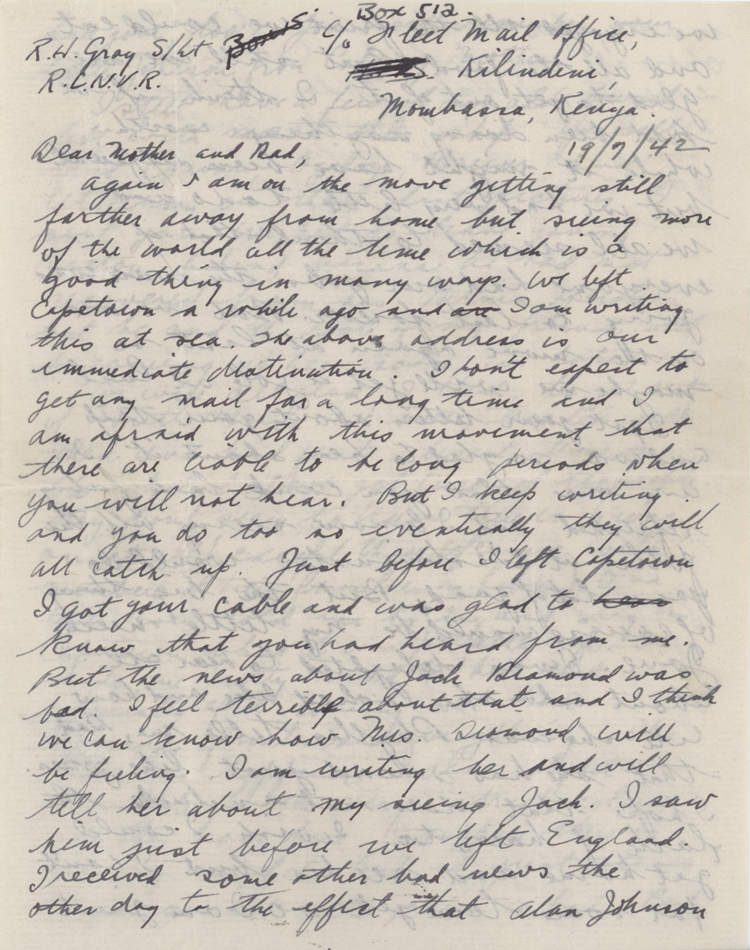 Box 512.
R.W. Gray S/Lt c/o Fleet Mail Office,
R.C.N.V.R. Kilindini,
Mombassa, Kenya.
19/7/42
Dear Mother and Dad,
Again I am on the move getting still
farther away from home but seeing more
of the world all the time which is a
good thing in many ways. We left
Capetown a while ago and are I am writing
this at sea. The above address is our
immediate destination. I don't expect to
get any mail for a long time and I
am afraid with this movement that
there are liable to be long periods when
you will not hear. But I keep writing
and you do too so eventually they will
all catch up. Just before I left Capetown
I got your cable and was glad to hear
know that you had heard from me.
But the news about Jack Diamond was
bad. I feel terrible about that and I think
we can know how Mrs. Diamond will
be feeling. I am writing her and will
tell her about my seeing Jack. I saw
him just before we left England.
I received some other bad news the
other day to the effect that Alan Johnson